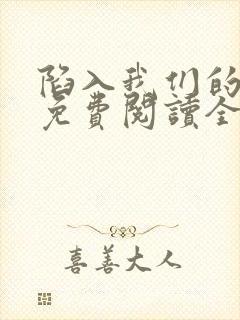 陷入我们的
免費閱讀全
喜善大人